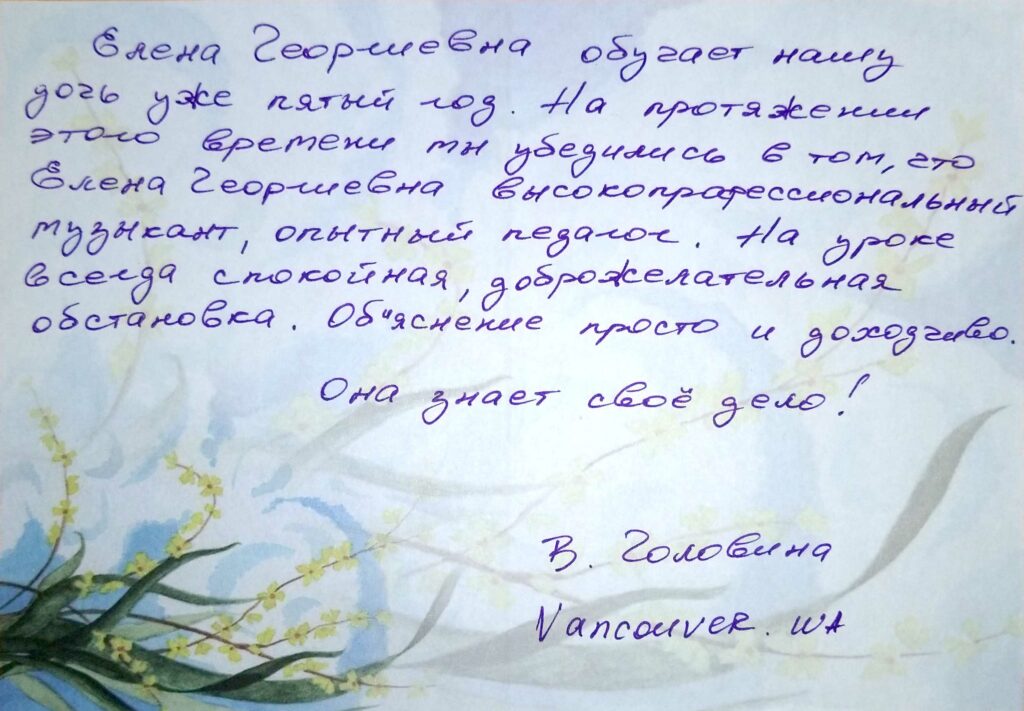 Елена Георгиевна обучает нашу
дочь уже пятый год. На протяжении
этого времени мы убедились в том, что
Елена Георгиевна высокопрофессиональный
музыкант, опытный педагог. На уроке
всегда спокойная, доброжелательная
обстановка. Об"яснение просто и доходчиво.
Она знает своё дело!
В. Головина
Vancouver. WA